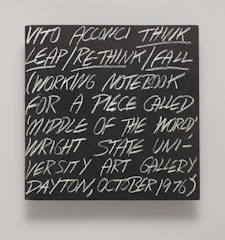 VITO ACCONCI THINK
LEAP/RE-THINK/FALL
(WORKING NOTEBOOK
FOR A PIECE CALLED
'MIDDLE OF THE WORLD,'
WRIGHT STATE UNI-
VERSITY ART GALLERY
DAYTON, OCTOBER 1976)